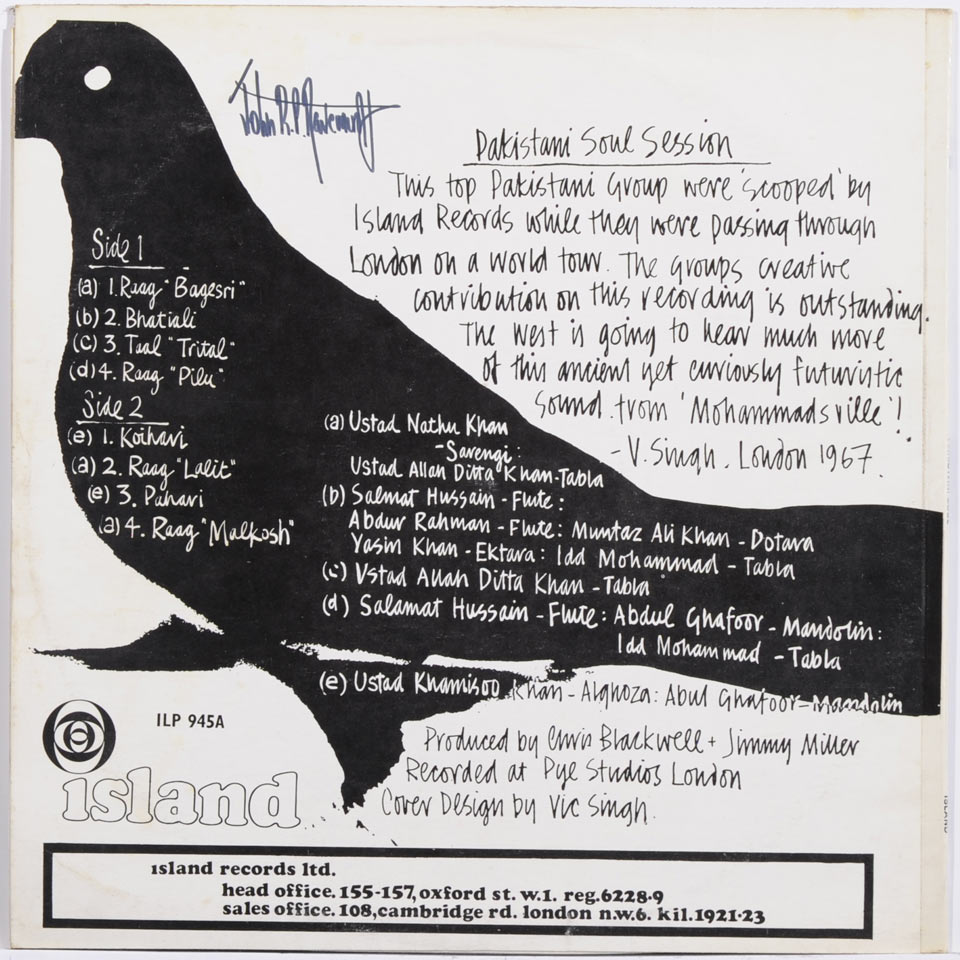 John R.P.
Pakistani Soul Session
This top Pakistani Group were 'scooped' by
Island Records while they were passing through
London on a world tour. The Groups creative
contribution on this recording is outstanding.
The west is going to hear much more
of this ancient yet curiously futuristic
sound from 'Mohammadsville'!
- V. Singh. London 1967.
Side 1
(a) 1. Raag "Bagesri"
(b) 2. Bhatiali
(c) 3. Taal "Trital"
(d) 4. Raag "Pilu"
Side 2
(e) 1. Koihari
(a) 2. Raag "Lalit"
(e) 3. Pahari
(a) 4. Raag "Malkosh"
(a) Ustad Nathu Khan
- Sarengi:
Ustad Allah Ditta Khan - Tabla
(b) Salmat Hussain - Flute:
Abdur Rahman - Flute: Mumtaz Ali Khan - Dotara
Yasin Khan - Ektara: Idd Mohammad - Tabla
(c) Ustad Allah Ditta Khan - Tabla
(d) Salamat Hussain - Flute: Abdul Ghafoor - Mandolin:
Idd Mohammad - Tabla
(e) Ustad Khamisoo Khan - Alghoza: Abul Ghafoor - Mandolin
Produced by Chris Blackwell + Jimmy Miller
Recorded at Pye Studios London
Cover Design by Vic Singh.
ILP 945A
island
island records ltd.
head office. 155-157, oxford st. w.1. reg. 6228-9
sales office. 108, cambridge rd. london n.w.6. kil. 1921-23
ISLAND